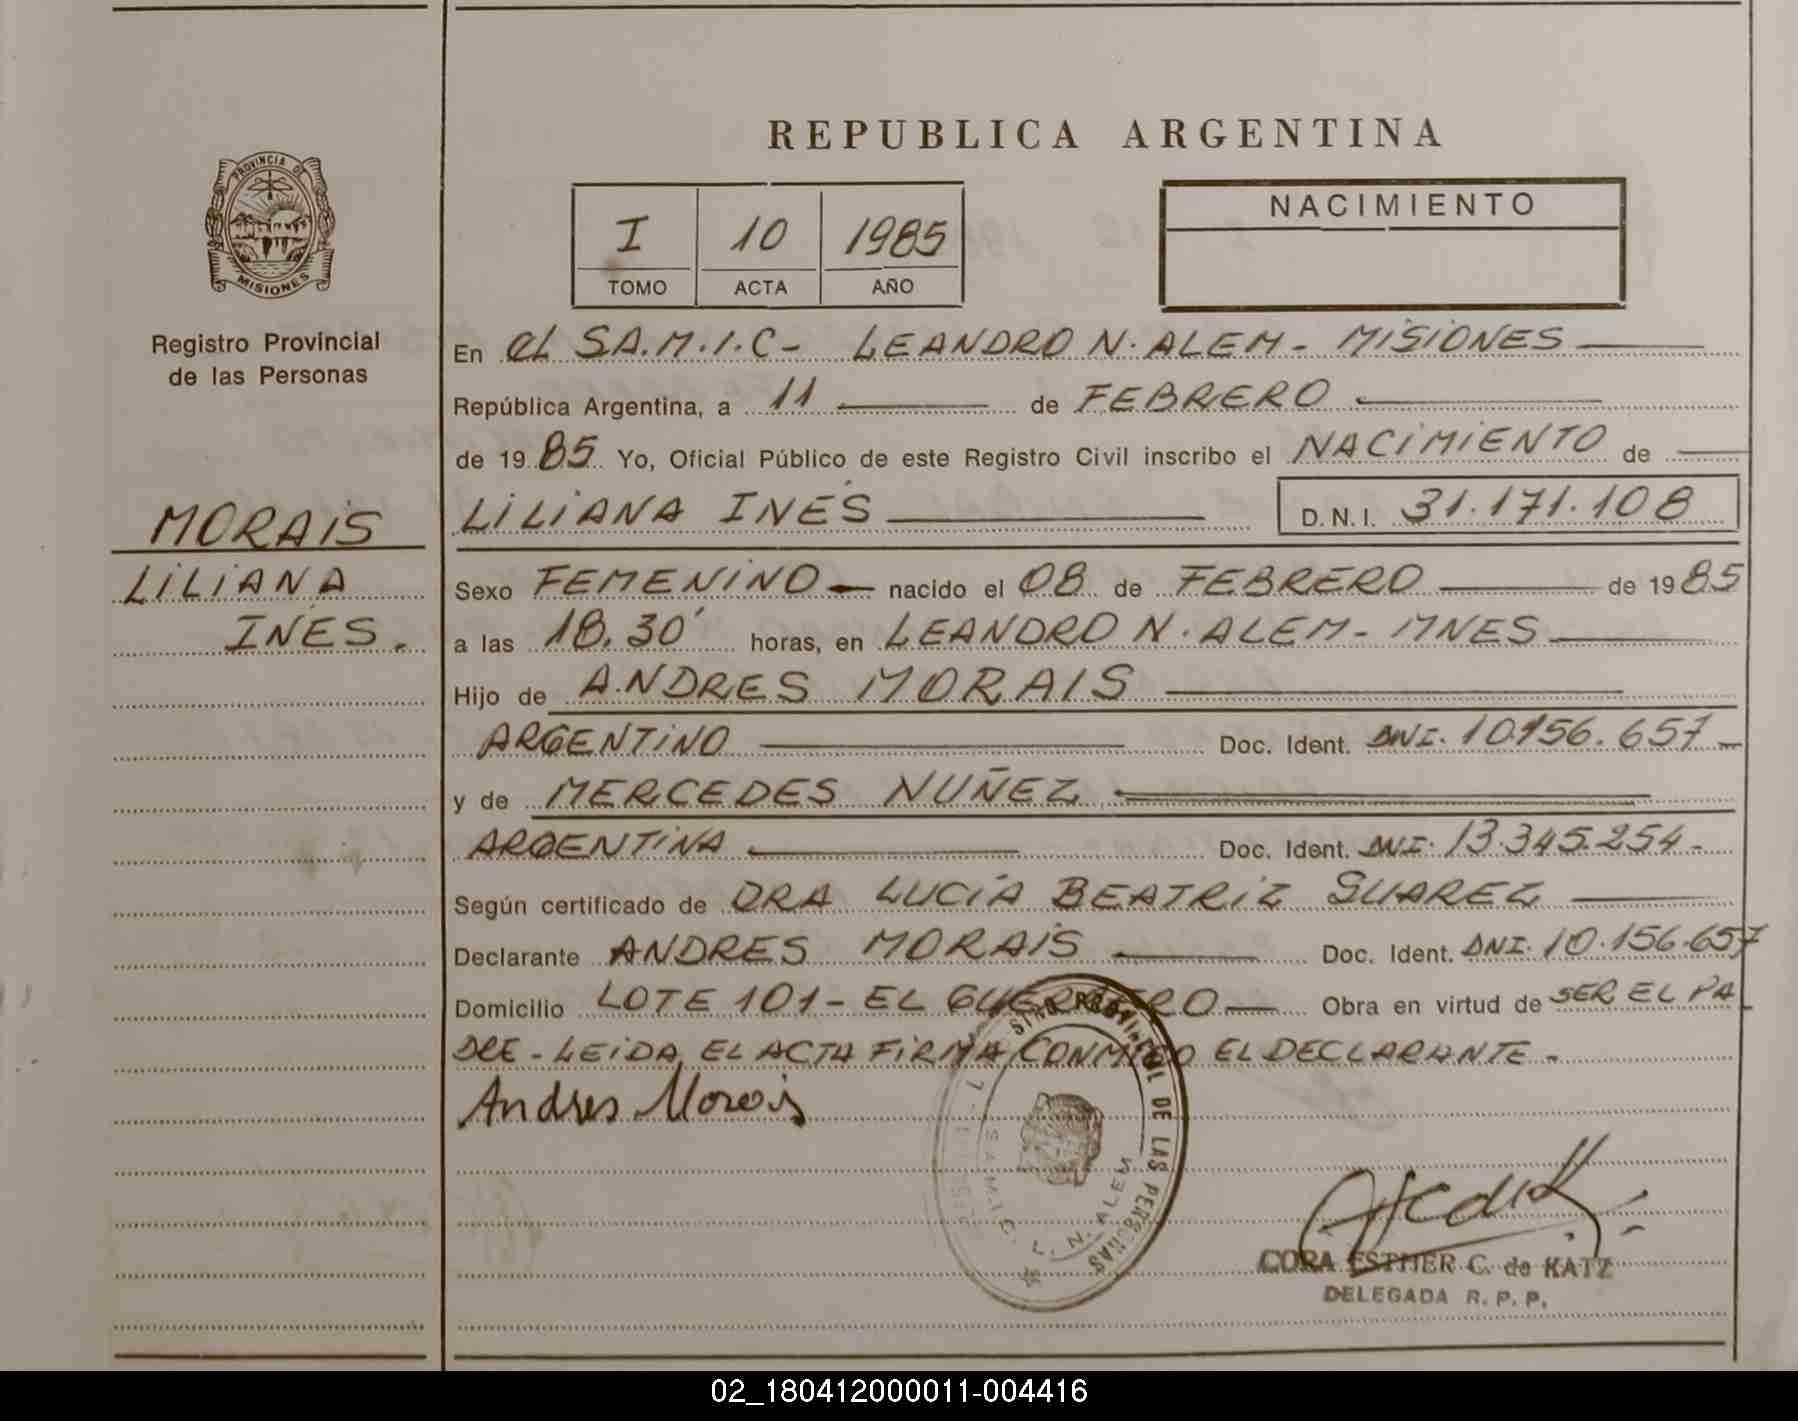 REPUBLICA ARGENTINA
PROVINCIA DE
MISIONES
Registro Provincial
de las Personas
I 10 1985
TOMO ACTA AÑO
NACIMIENTO
En el SA.M.I.C- LEANDRO N. ALEM - MISIONES
República Argentina, a 11 de FEBRERO
de 1985 Yo, Oficial Público de este Registro Civil inscribo el NACIMIENTO de
MORAIS
LILIANA
INÉS.
LILIANA INÉS D.N.I. 31.171.108
Sexo FEMENINO nacido el 08 de FEBRERO de 1985
a las 18.30' horas, en LEANDRO N. ALEM - MNES
Hijo de ANDRES MORAIS
ARGENTINO Doc. Ident. DNI. 10.156.657
y de MERCEDES NUÑEZ
ARGENTINA Doc. Ident. DNI. 13.345.254.
Según certificado de DRA LUCÍA BEATRIZ SUAREZ
Declarante ANDRES MORAIS Doc. Ident. DNI. 10.156.657
Domicilio LOTE 101 - EL GUERRERO Obra en virtud de SER EL PA
DRE - LEIDA EL ACTA FIRMA CONMIGO EL DECLARANTE.
Andres Morais
PROVINCIAL DE LAS PERSONAS
SAMIC L. N. ALEM
CORA ESTHER C. de KATZ
DELEGADA R. P. P.
02_180412000011-004416